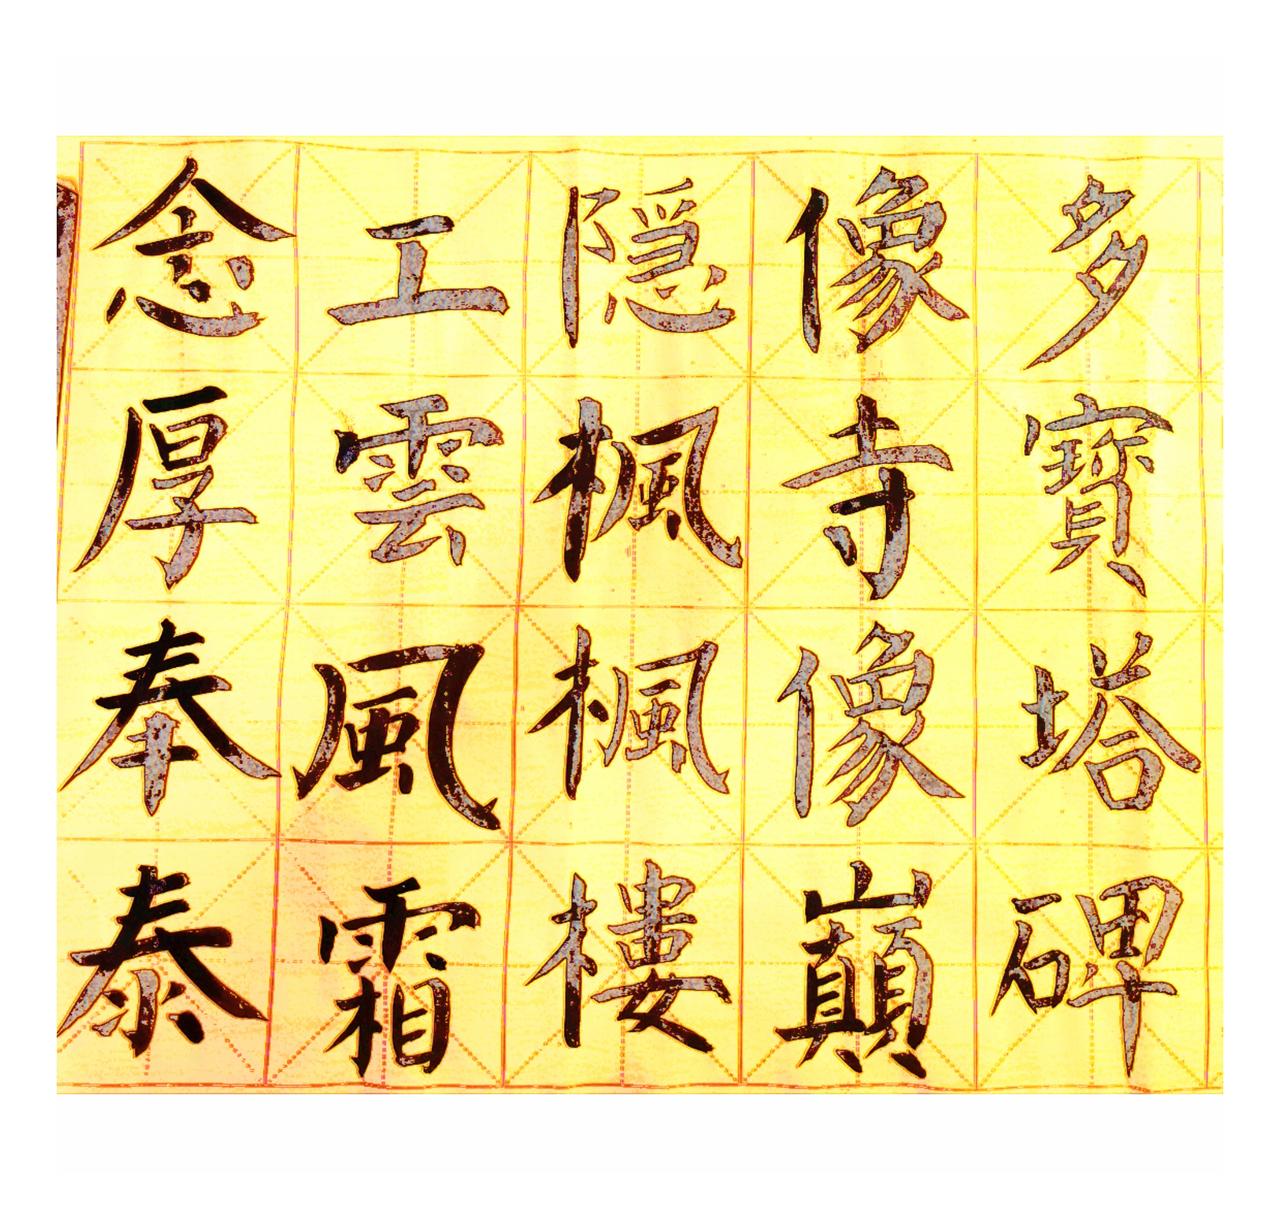 多寶塔碑
像寺像巔
隠楓楓樓
工雲風霜
念厚奉泰